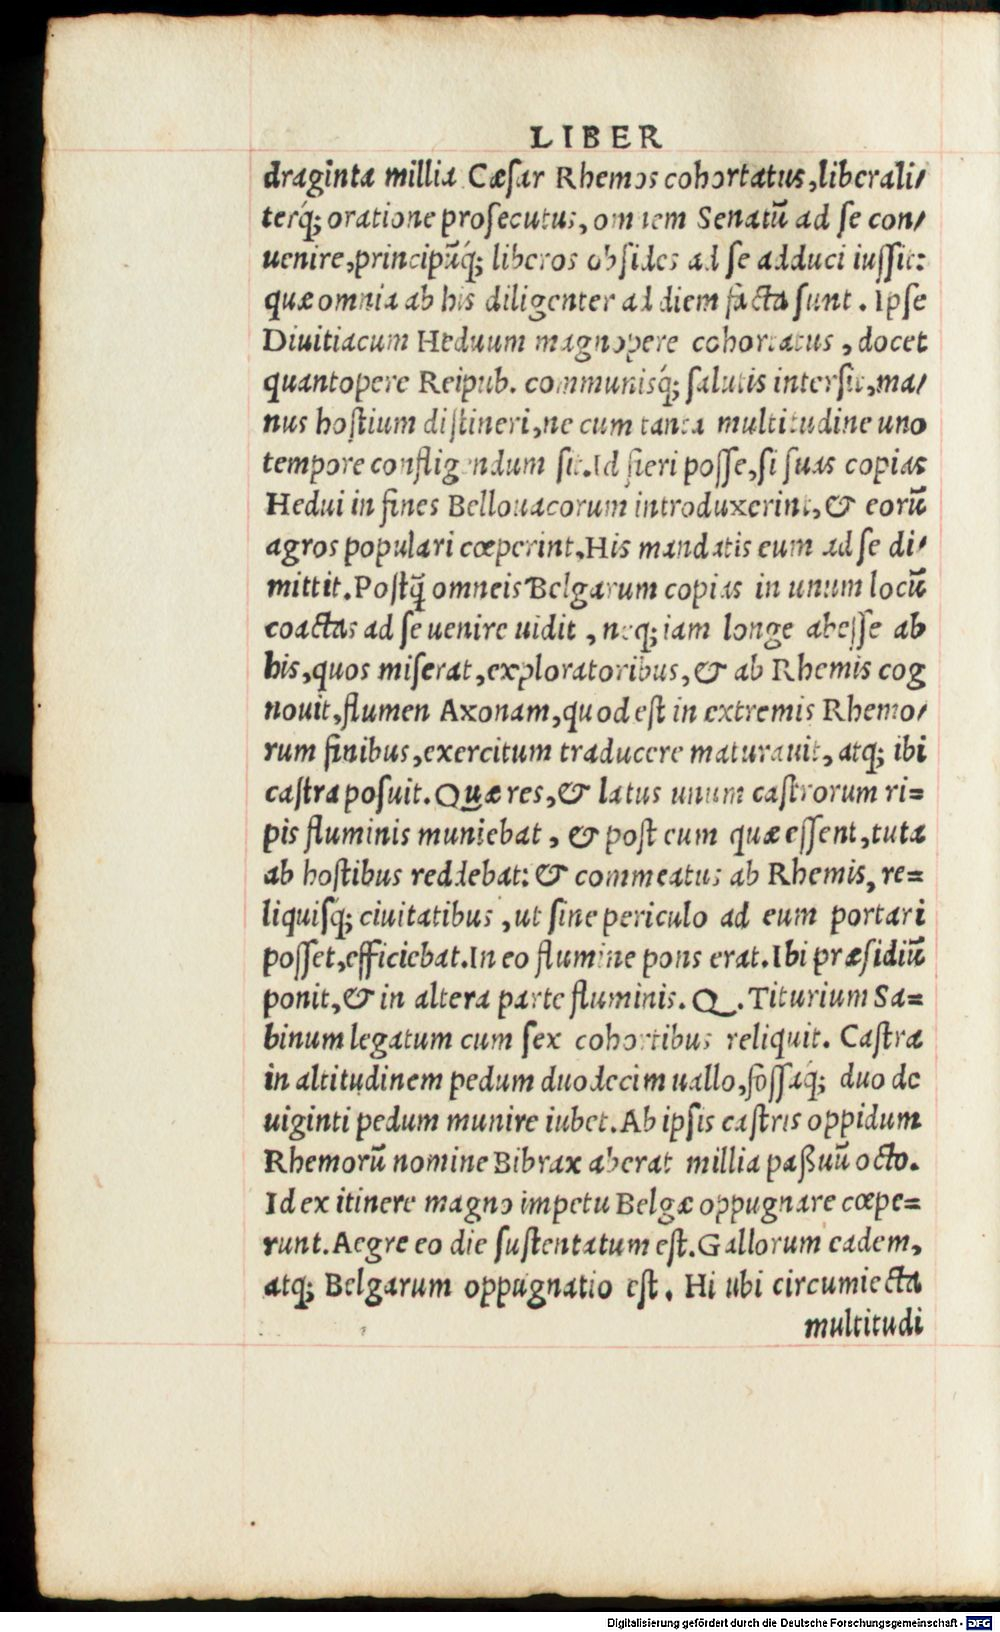 LIBER
draginta millia Cæſar Rhemos cohortatus, liberali⸗
terq́; oratione proſecutus, omnem Senatū ad ſe con⸗
uenire, principūq́; liberos obſides ad ſe adduci iuſſit:
quæ omnia ab his diligenter ad diem facta ſunt. Ipſe
Diuitiacum Heduum magnopere cohortatus, docet
quantopere Reipub. communisq́; ſalutis interſit, ma⸗
nus hoſtium diſtineri, ne cum tanta multitudine uno
tempore confligendum ſit. Id fieri poſſe, ſi ſuas copias
Hedui in fines Bellouacorum introduxerint, & eorū
agros populari cœperint, His mandatis eum ad ſe di⸗
mittit. Poſtq̄ omneis Belgarum copias in unum locū
coactas ad ſe uenire uidit, neq; iam longe abeſſe ab
his, quos miſerat, exploratoribus, & ab Rhemis cog
nouit, flumen Axonam, quod eſt in extremis Rhemo⸗
rum finibus, exercitum traducere maturauit, atq; ibi
caſtra poſuit. Quæ res, & latus unum caſtrorum ri=
pis fluminis muniebat, & poſt eum quæ eſſent, tuta
ab hoſtibus reddebat: & commeatus ab Rhemis, re=
liquiſq́; ciuitatibus, ut ſine periculo ad eum portari
poſſet, efficiebat. In eo flumine pons erat. Ibi præſidiū
ponit, & in altera parte fluminis. Q. Titurium Sa=
binum legatum cum ſex cohortibus reliquit. Caſtra
in altitudinem pedum duodecim uallo, foſſaq́; duo de
uiginti pedum munire iubet. Ab ipſis caſtris oppidum
Rhemorū nomine Bibrax aberat millia paßuū octo.
Id ex itinere magno impetu Belgæ oppugnare cœpe=
runt. Aegre eo die ſuſtentatum eſt. Gallorum eadem,
atq; Belgarum oppugnatio eſt. Hi ubi circumiecta
multitudi
Digitalisierung gefördert durch die Deutsche Forschungsgemeinschaft - DFG